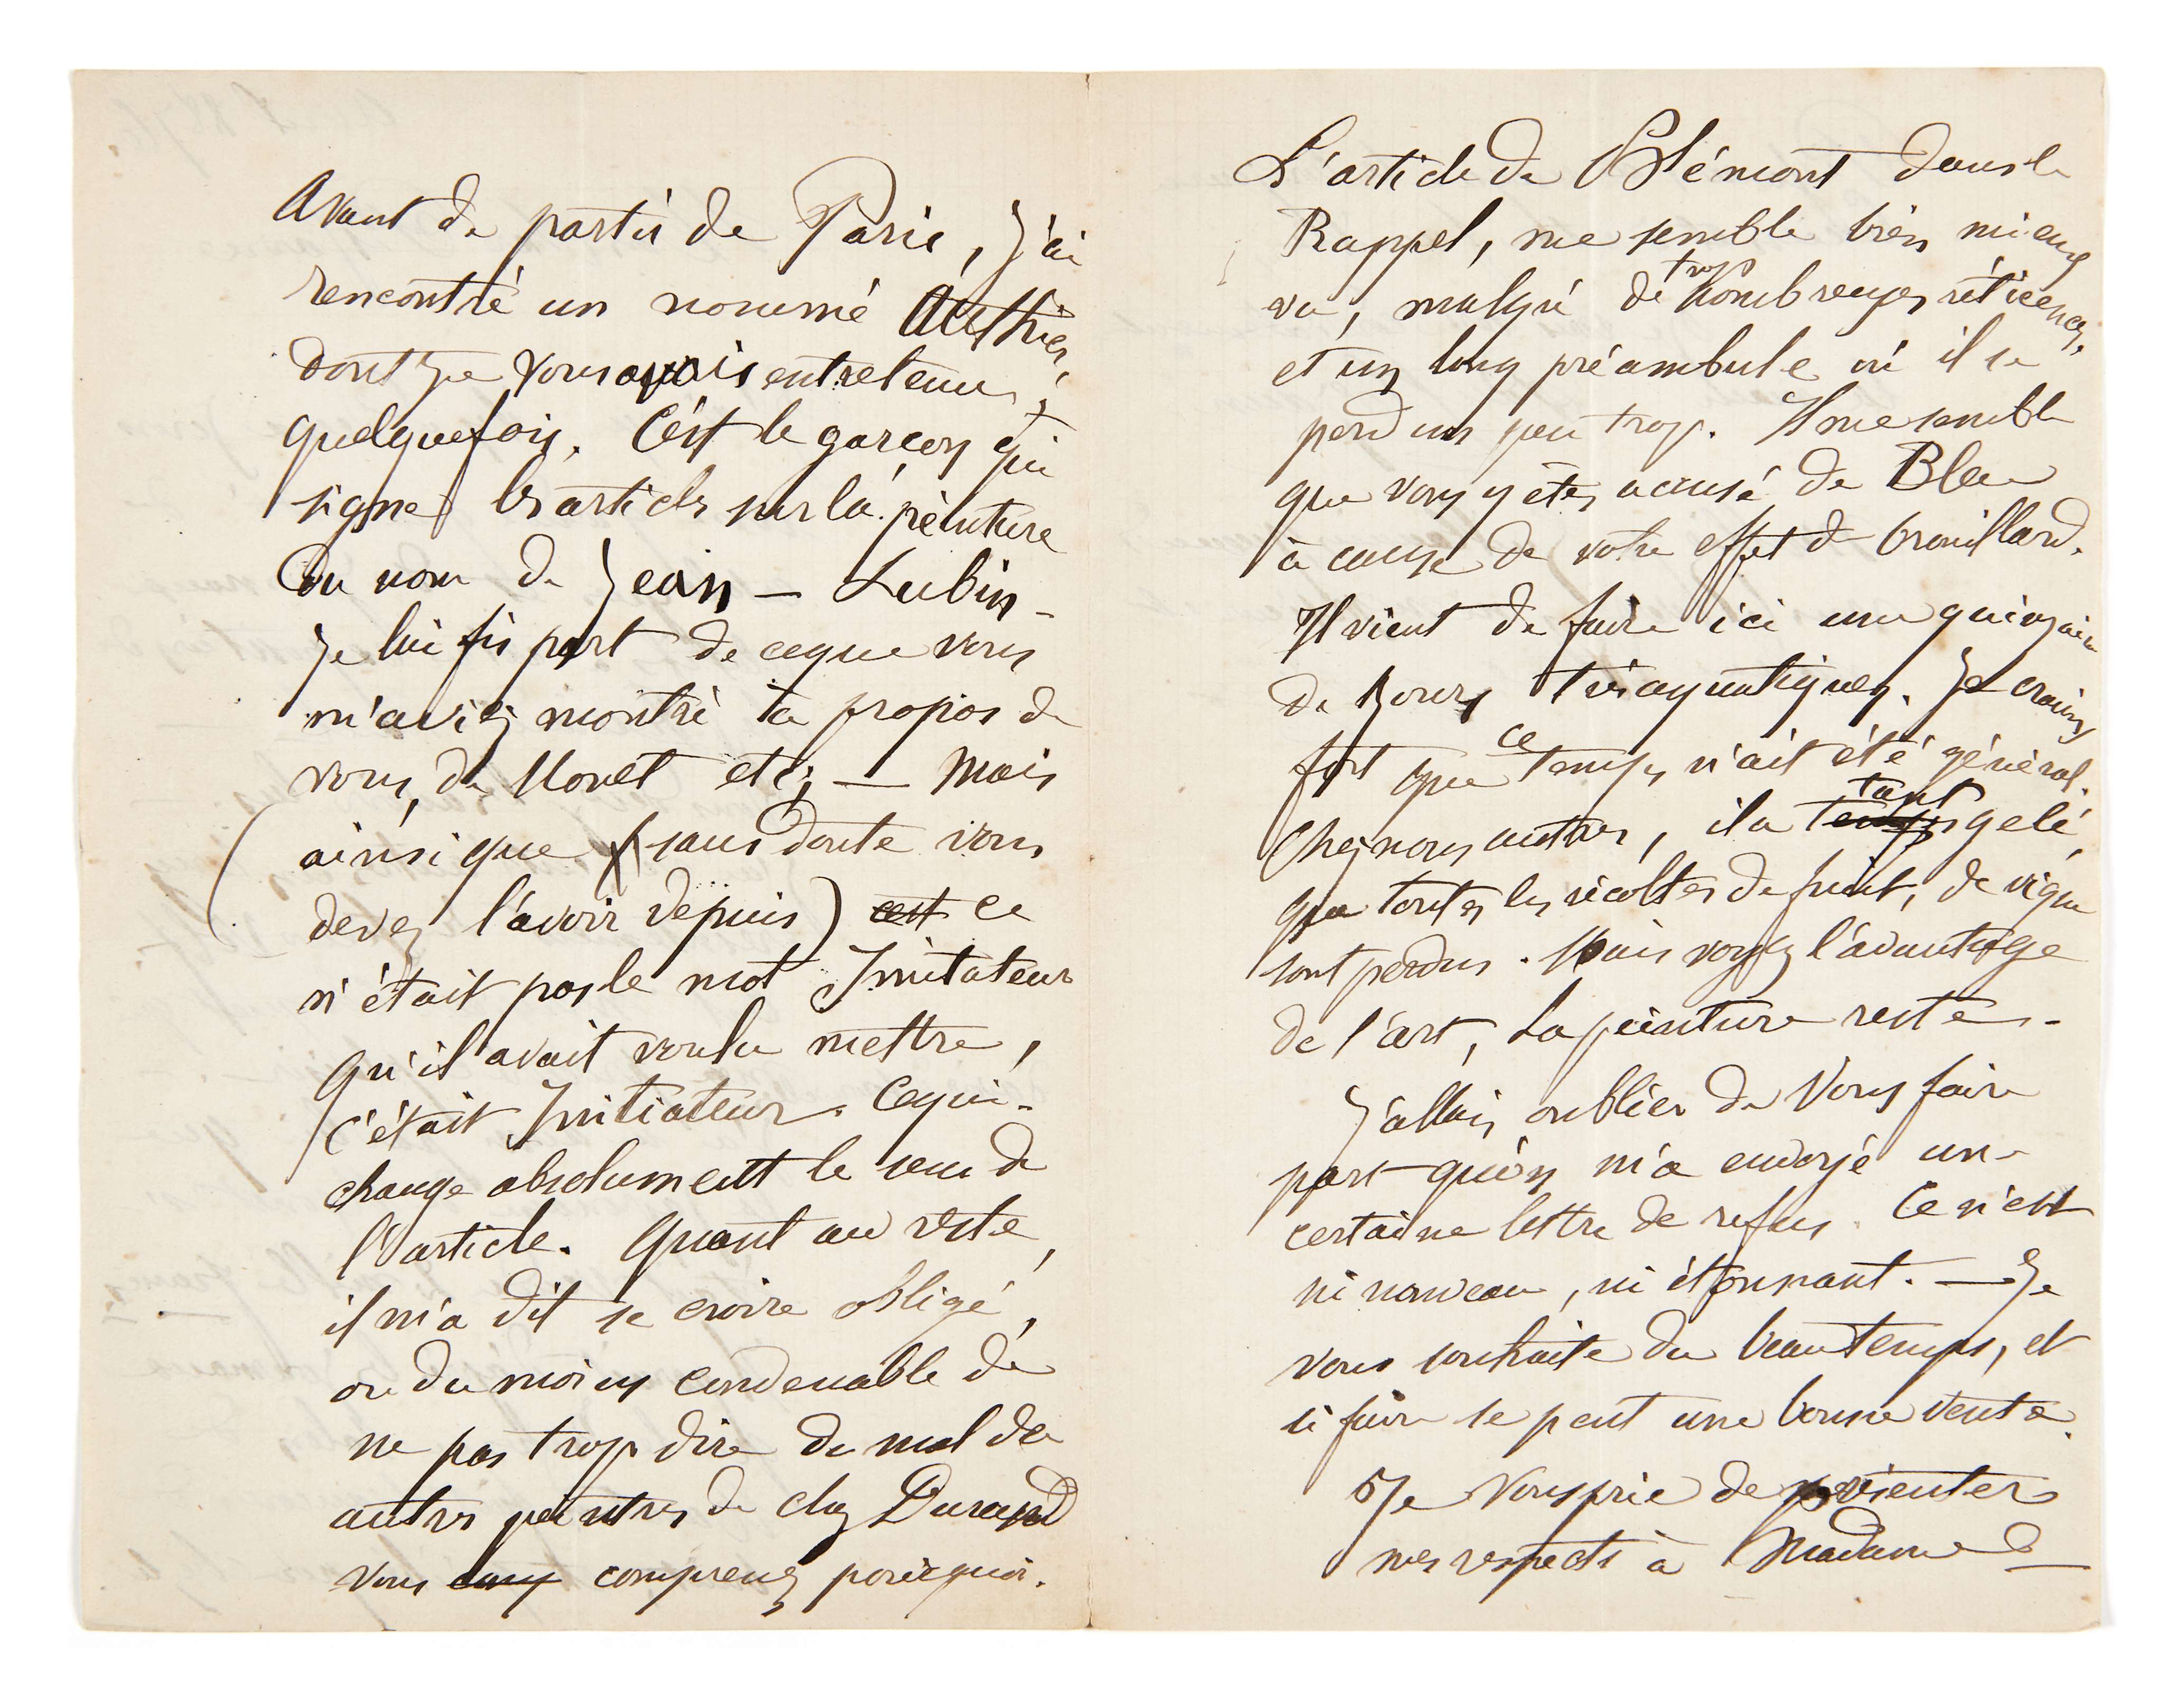 Avant de partir de Paris, j'ai
rencontré un nommé Authier,
dont je vous avais entretenu
quelquefois. C'est le garçon qui
signe les articles sur la peinture
du nom de Jean – Lubin –
Je lui fis part de ce que vous
m'aviez montré à propos de
vous, de Monet etc; — Mais
(ainsi que sans doute vous
devez l'avoir depuis) c'est ce
n'était pas le mot Imitateur
qu'il avait voulu mettre,
c'était Initiateur. Ce qui
change absolument le sens de
l'article. Quant au reste,
il m'a dit se croire obligé,
ou du moins condenable de
ne pas trop dire de mal des
autres peintres de chez Durand
vous comp comprenez pourquoi.
L'article de Blémont dans le
Rappel, me semble bien mieux
vu, malgré de trop nombreuses réticences,
et un long préambule où il se
perd un peu trop. Il me semble
que vous y êtes accusé de Bleu
à cause de votre effet de brouillard.
Il vient de faire ici une quinzaine
de jours très aquatiques. Je crains
fort que ce temps n'ait été général.
Chez nous autres, il a temps tant gelé,
que toutes les récoltes de fruit, de vigne
sont perdus. Mais voyez l'avantage
de l'art, La peinture reste –
J'allais oublier de vous faire
part qu'on m'a envoyé une
certaine lettre de refus. Ce n'est
ni nouveau, ni étonnant. — Je
vous souhaite du beau temps, et
si faire se peut une bonne vente.
Je vous prie de présenter
mes respects à Madame